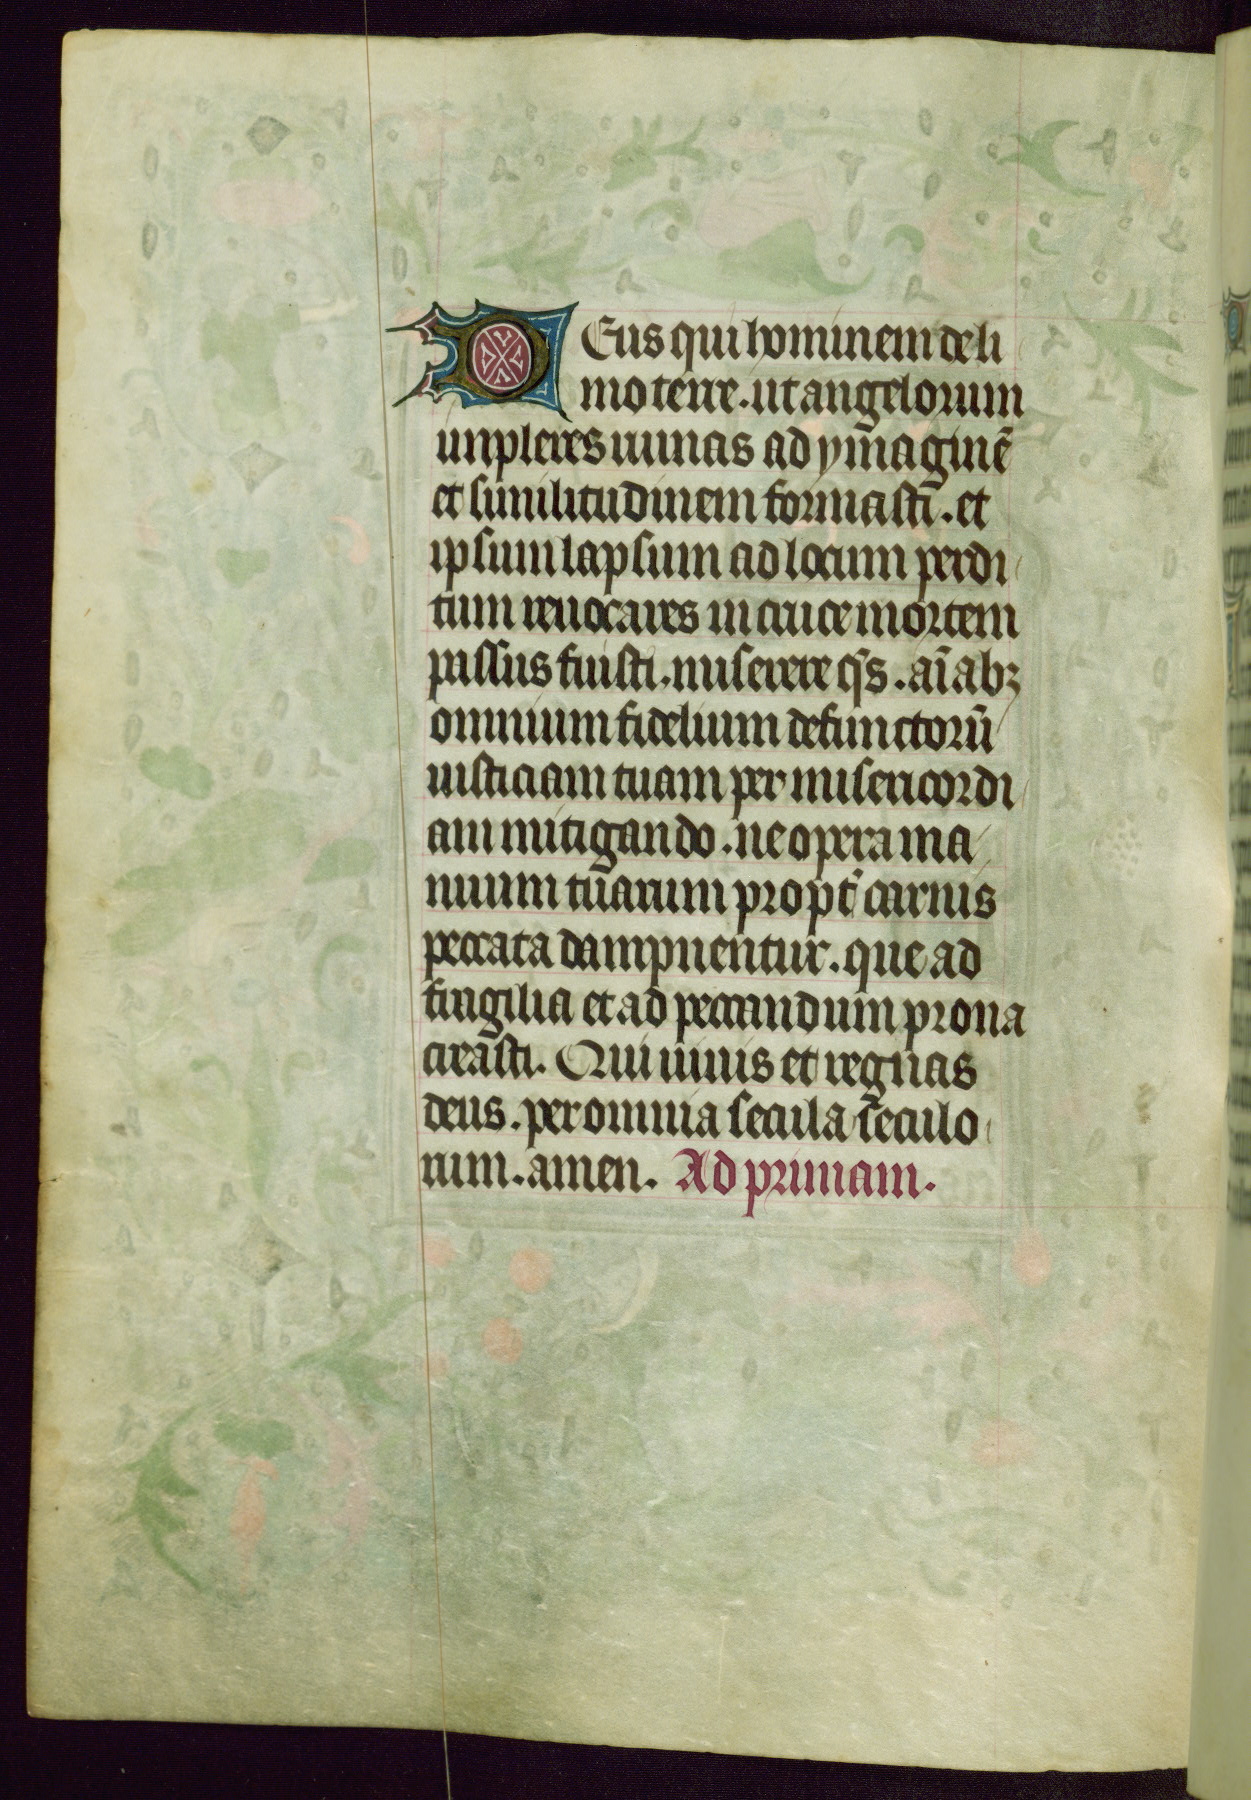 Deus qui hominem de li
mo terre. ut angelorum
impleres ruinas ad ymaginē
et similitudinem formasti. et
ipsum lapsum ad locum perdi
tum reuocares in cruce mortem
passus fuisti. miserere q̄s. aīabꝫ
omnium fidelium defunctorū
iusticiam tuam per misericordi
am mitigando. ne opera ma
nuum tuarum propt̄ carnis
peccata dampnentur. que ad
fragilia et ad peccandum prona
creasti. Qui uiuis et regnas
deus. per omnia secula seculo
rum. amen. Ad primam.